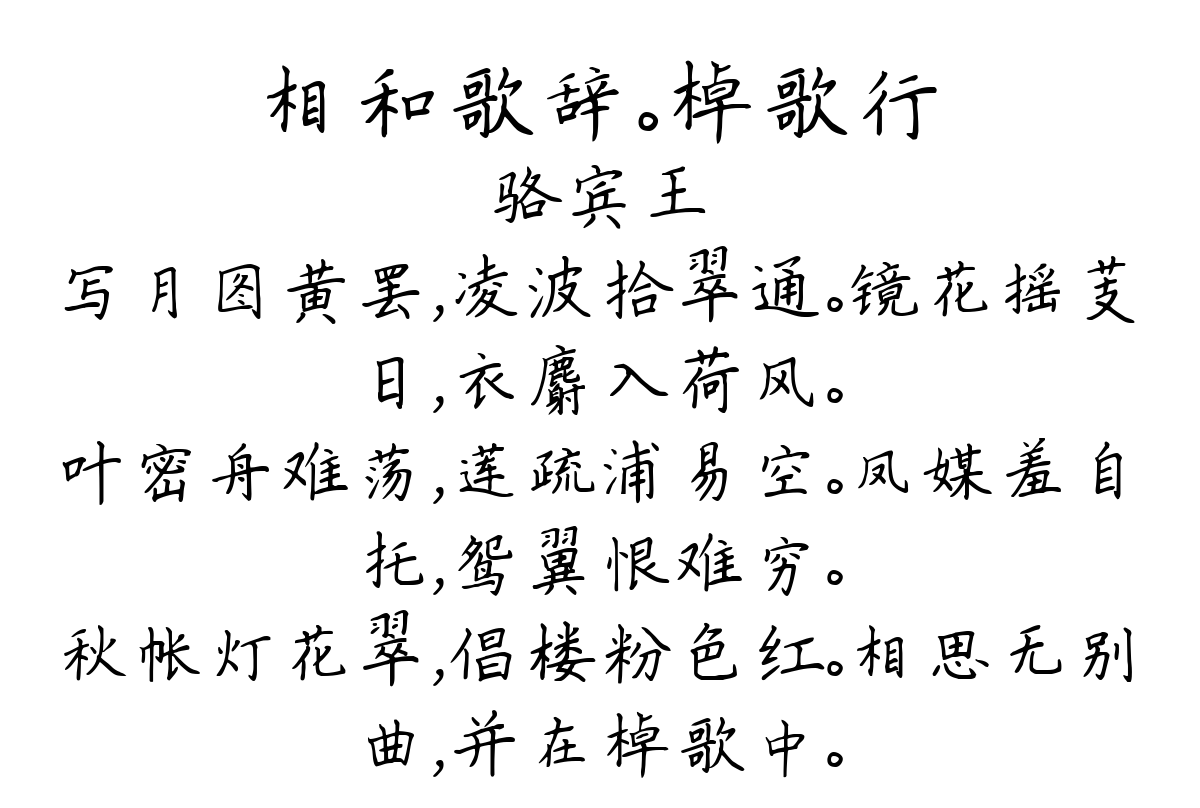 相和歌辞。棹歌行
骆宾王
写月图黄罢,凌波拾翠通。镜花摇芰
日,衣麝入荷风。
叶密舟难荡,莲疏浦易空。凤媒羞自
托,鸳翼恨难穷。
秋帐灯花翠,倡楼粉色红。相思无别
曲,并在棹歌中。